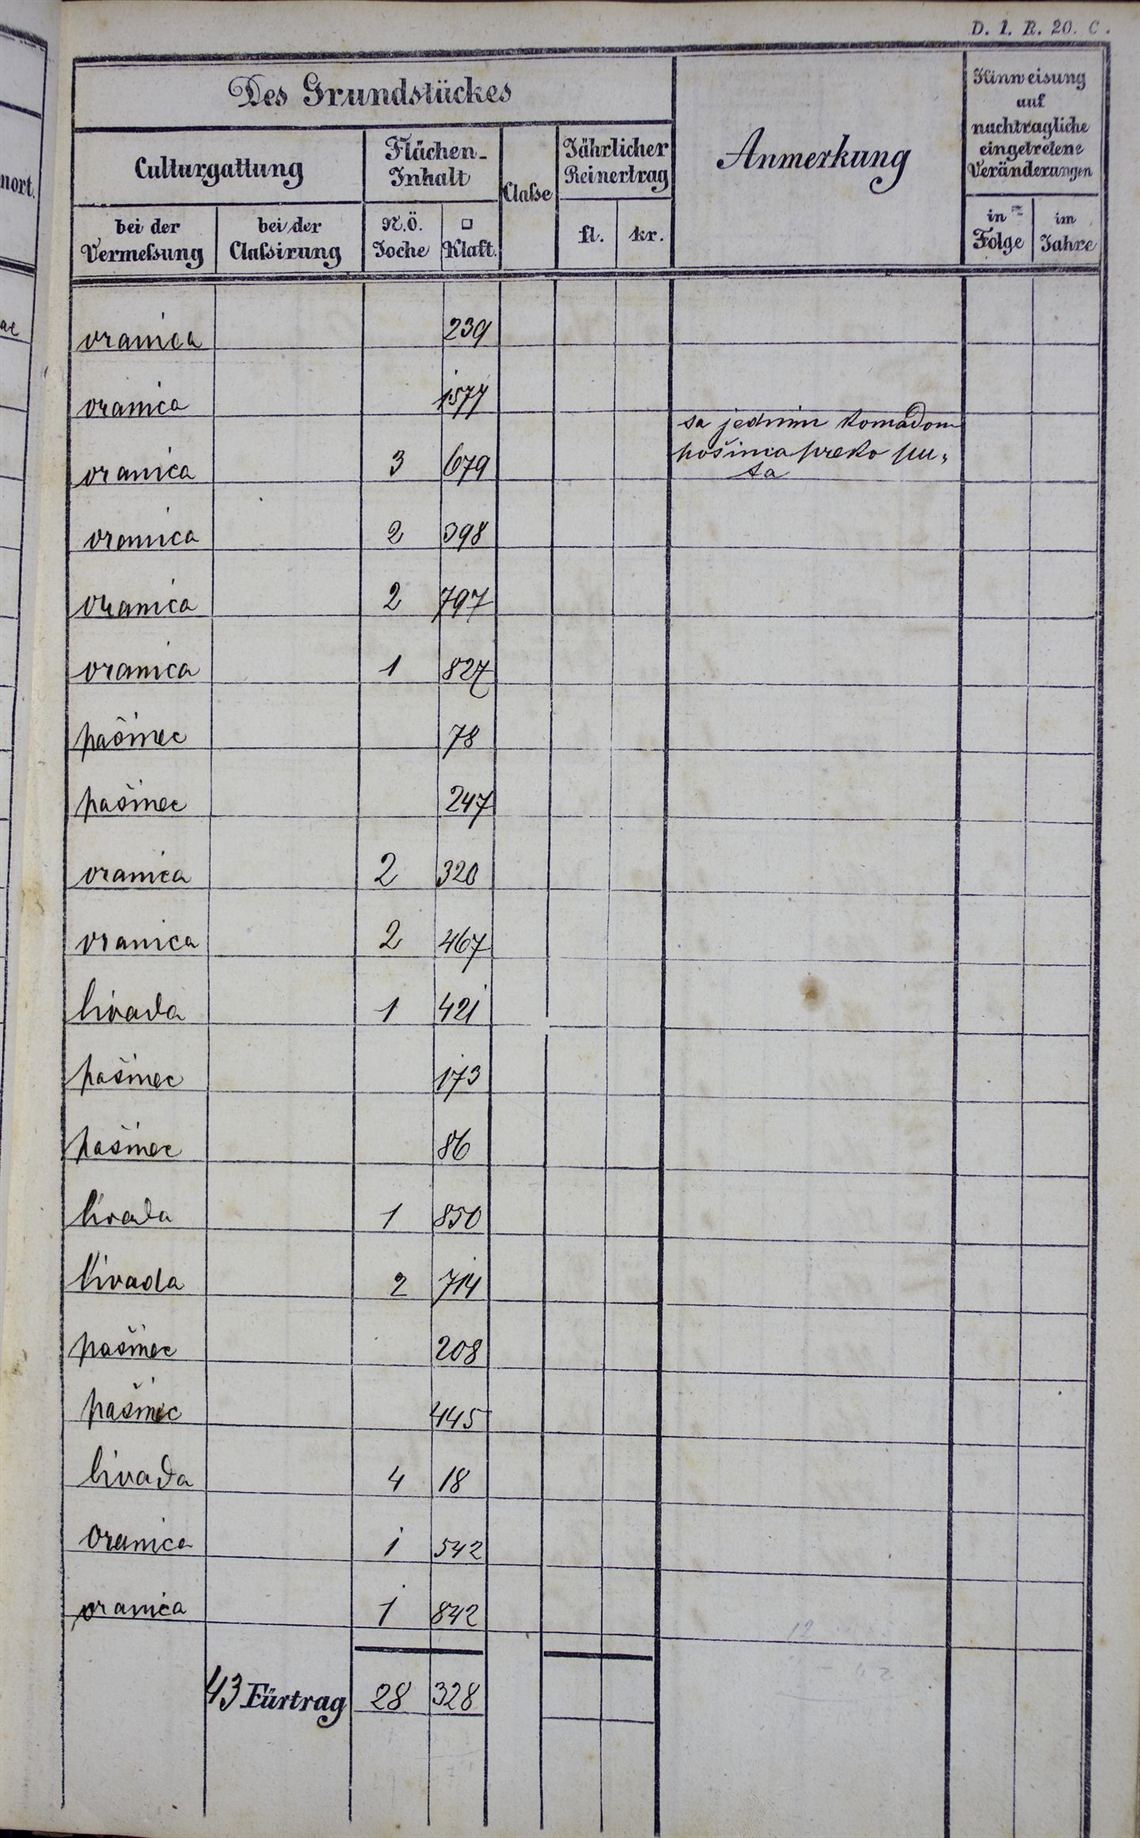 D. 1. R. 20. C.
Des Grundstückes
Anmerkung
Hinweisung
auf
nachtragliche
eingetretene
Veränderungen
Culturgattung
Flächen-
Inhalt
Classe
Jährlicher
Reinertrag
bei der
Vermessung
bei der
Classirung
N.Ö.
Joche
□
Klaft.
fl.
kr.
in
Folge
im
Jahre
nort.
oranica 239
oranica 1577
oranica 3 679
sa jednim komadom
pošinca preko pu,
ta
oranica 2 398
oranica 2 797
oranica 1 827
pašinec 78
pašinec 247
oranica 2 320
oranica 2 467
livada 1 421
pašinec 173
pašinec 86
livada 1 850
livada 2 714
pašinec 208
pašinec 445
livada 4 18
oranica 1 542
oranica 1 842
43 Fürtrag 28 328